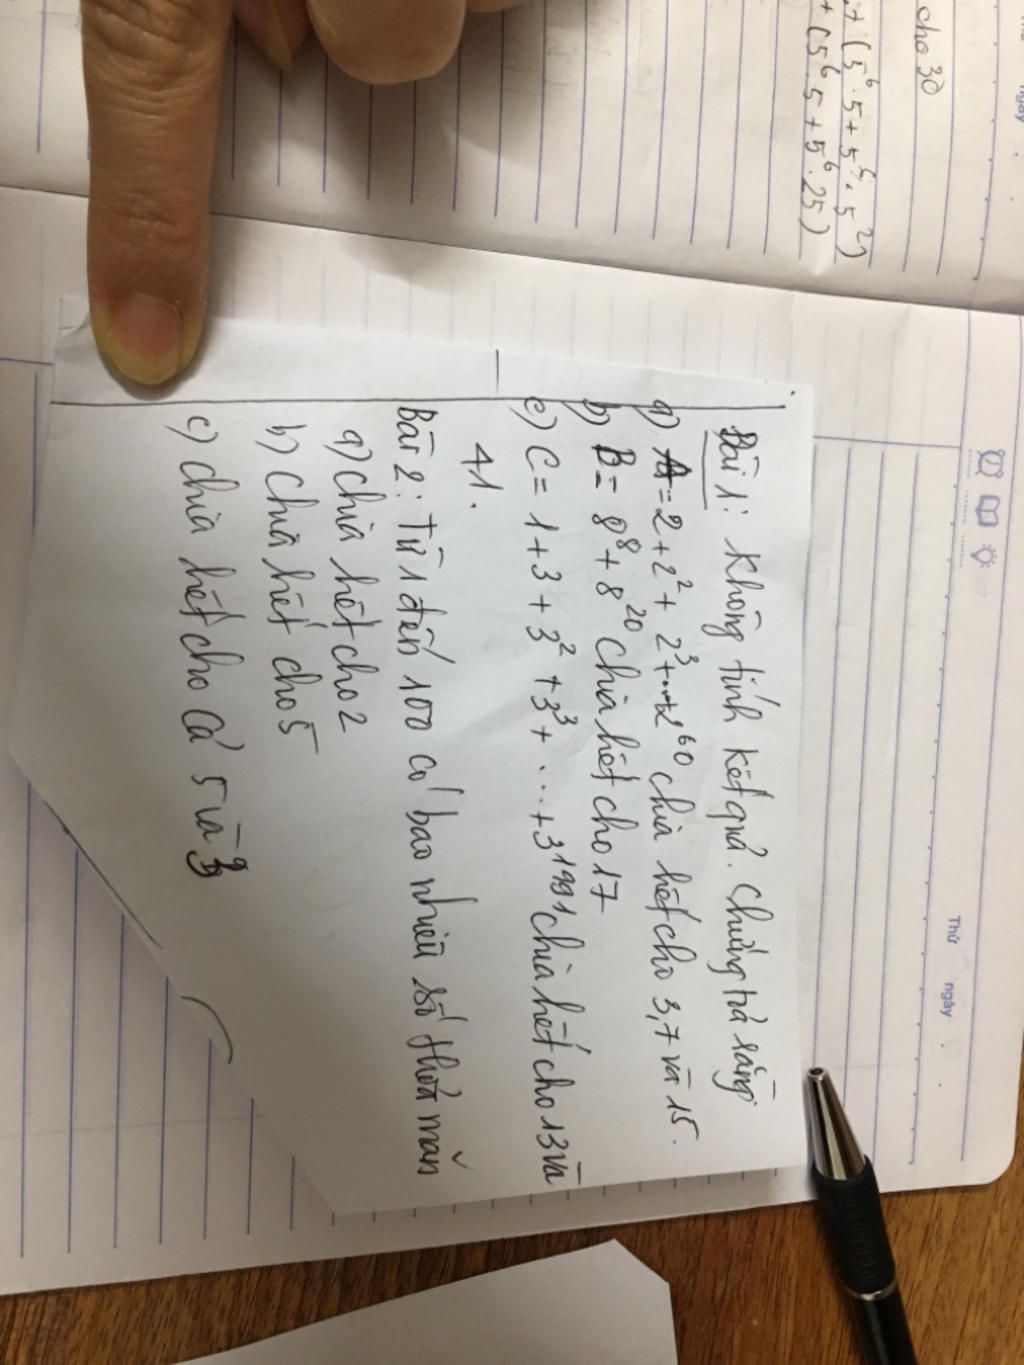 cho 30
+ (5⁶.5 + 5⁶.5²)
+ (5⁶.5 + 5⁶.25)
Thứ ngày
Bài 1: Không tính kết quả. Chứng tỏ rằng
a) A = 2 + 2² + 2³ + ... + 2⁶⁰ chia hết cho 3, 7 và 15.
b) B = 8⁸ + 8²⁰ chia hết cho 17
c) C = 1 + 3 + 3² + 3³ + ... + 3¹⁹⁹¹ chia hết cho 13 và
41.
Bài 2: Từ 1 đến 100 có bao nhiêu số thoả mãn
a) chia hết cho 2
b) chia hết cho 5
c) chia hết cho cả 5 và 3